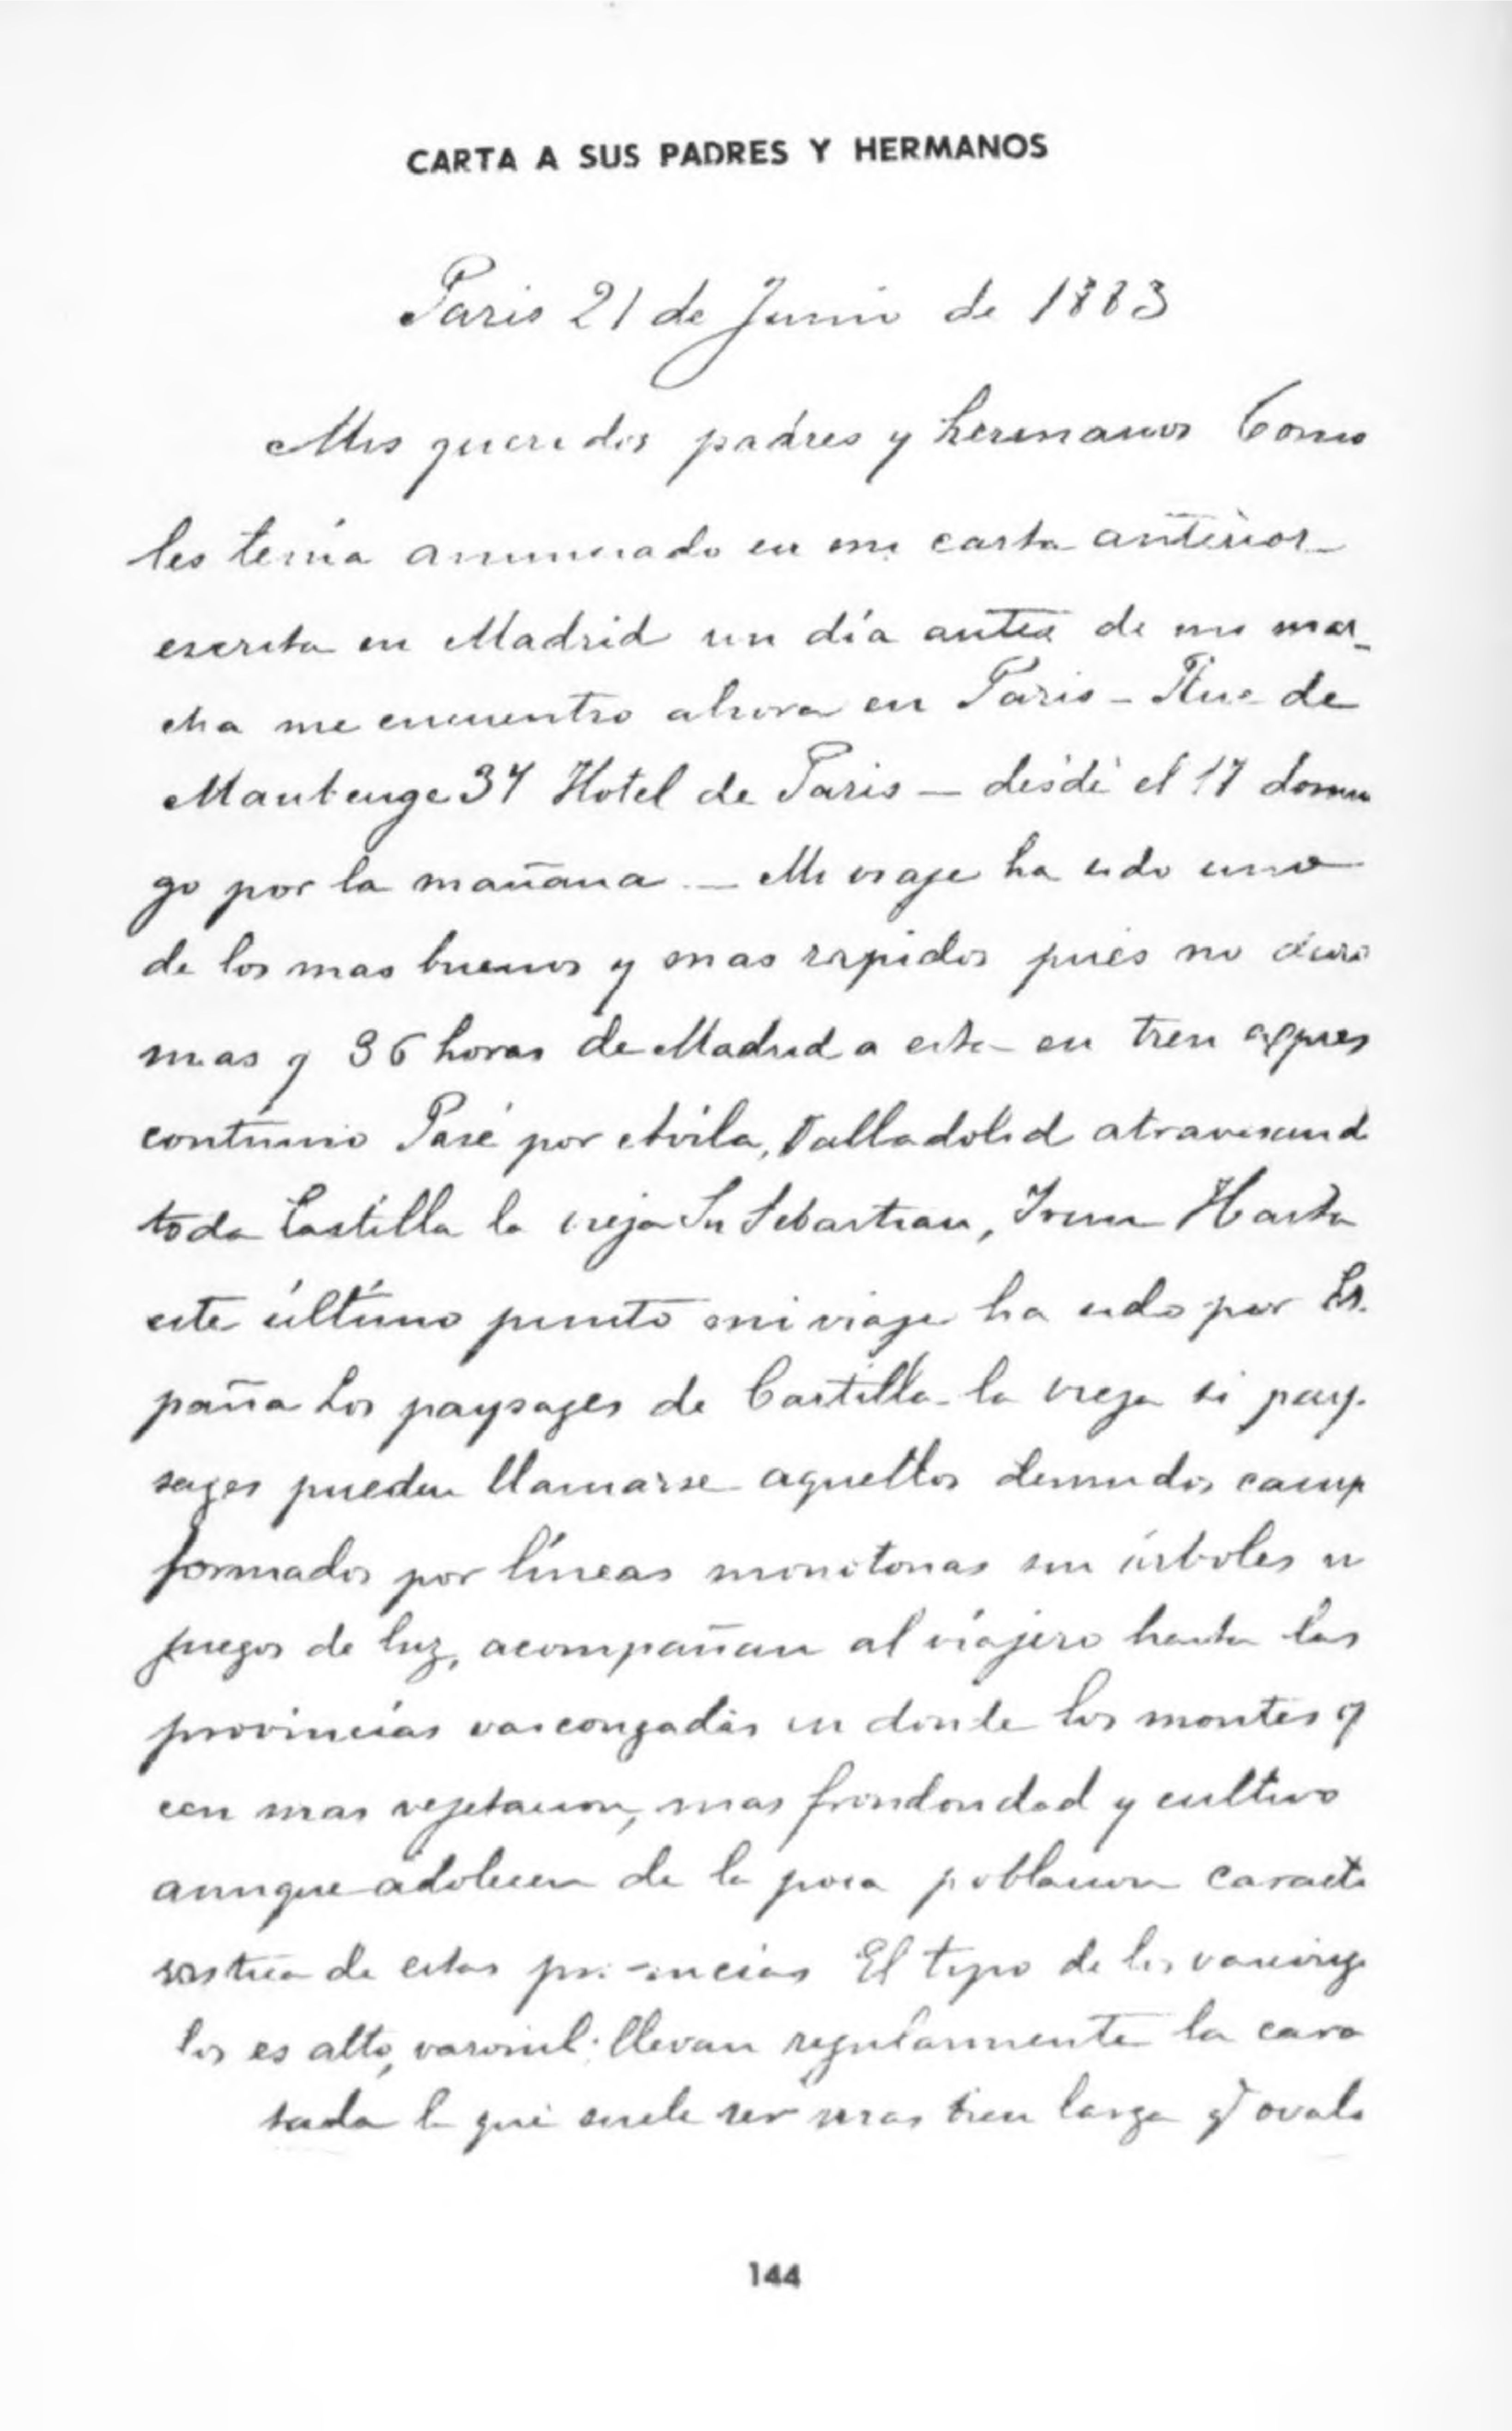 CARTA A SUS PADRES Y HERMANOS
Paris 21 de Junio de 1883
Mis queridos padres y hermanos Como
les tenía anunciado en mi carta anterior
escrita en Madrid un día antes de mi mar_
cha me encuentro ahora en Paris – Rue de
Maubeuge 37 Hotel de Paris — desde el 17 domin
go por la mañana — Mi viaje ha sido uno
de los mas buenos y mas rapidos pues no duró
mas q 36 horas de Madrid a esta en tren expres
contínuo Pasé por Avila, Valladolid atravesand
toda Castilla la vieja Sn Sebastian, Irun Hasta
este último punto mi viaje ha sido por Es.
paña Los paysages de Castilla la vieja si pay.
sages pueden llamarse aquellos desnudos camp
formados por líneas monótonas sin árboles ni
juegos de luz, acompañan al viajero hasta las
provincias vascongadas en donde los montes of
cen mas vegetacion, mas frondosidad y cultivo
aunque adolecen de la poca poblacion caracte
rística de estas provincias El tipo de los vascong
dos es alto, varonil: llevan regularmente la cara
la que suele ser mas bien larga y ovala
144